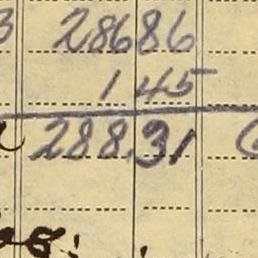 3 286 86
1 45
288.31